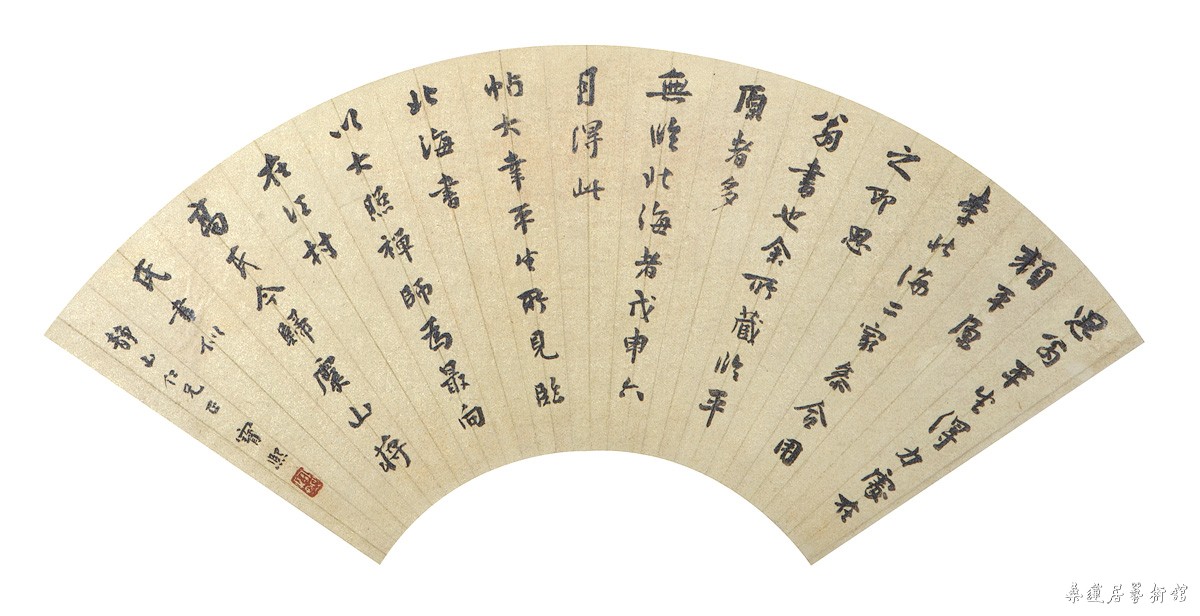 思翁平生得力處在
顏平原
李北海二家參合用
之即思
翁書也余所藏臨平
原者多
無臨北海者戊申六
月得此
帖大幸平生所見臨
北海書
以大照禪師為最向
在江村
高氏今歸虞山蔣
氏書似
靜山仁兄正 寶熙
桑蓮居藝術館